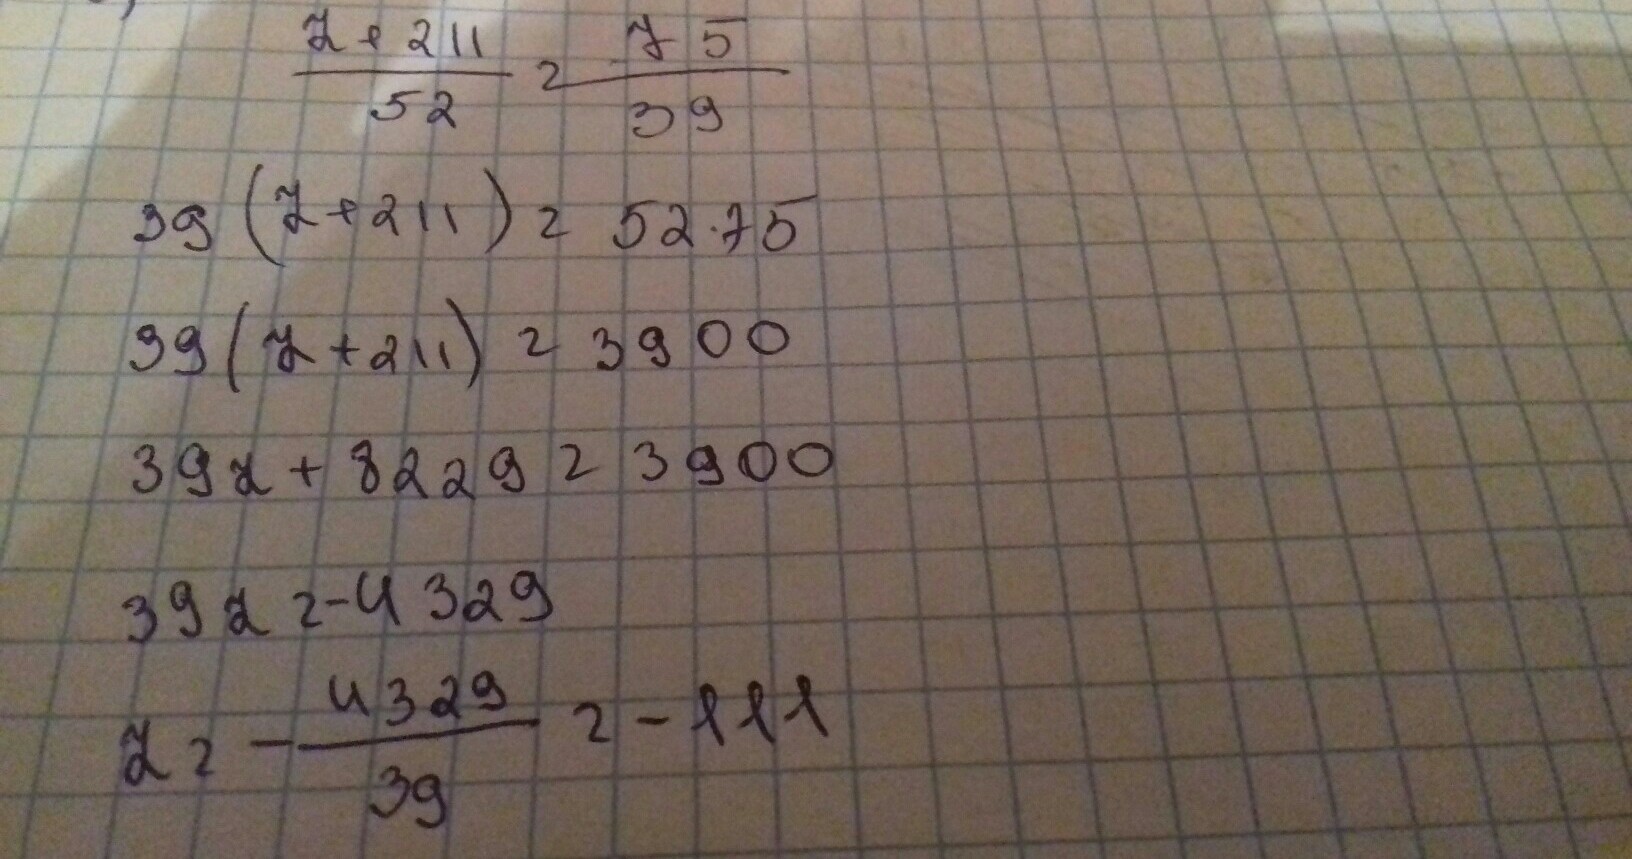 z + 211 / 52 = 75 / 39
39 (z + 211) = 52 · 75
39 (z + 211) = 3900
39z + 8229 = 3900
39z = -4329
z = - 4329 / 39 = -111